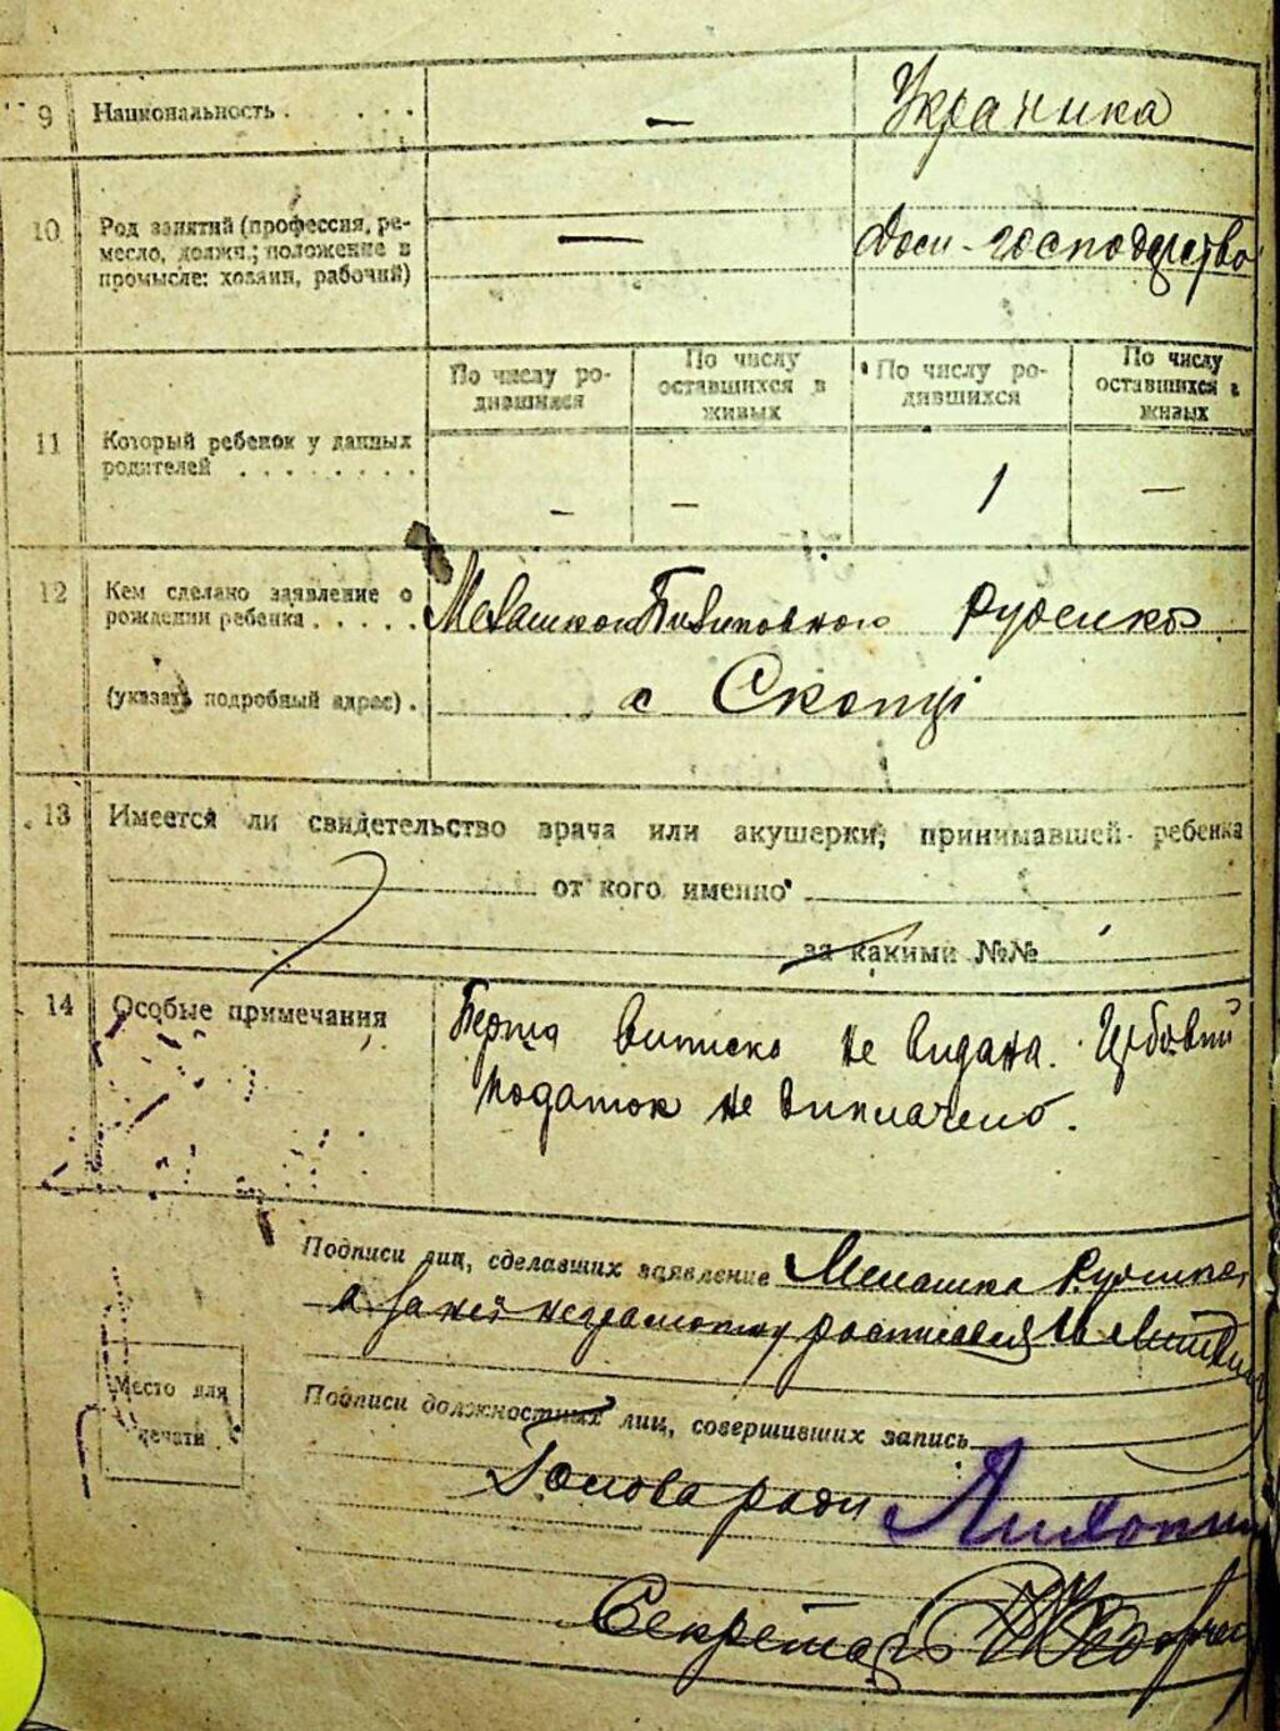 9 Национальность . . . . — Украинка
10 Род занятий (профессия, ре-
месло, должн.; положение в
промысле: хозяин, рабочий) — Дом-господарство
11 Который ребенок у данных
родителей . . . . . . . .
По числу ро-
дившихся
По числу
оставшихся в
живых
По числу ро-
дившихся
По числу
оставшихся в
живых
– – 1 —
12 Кем сделано заявление о
рождении ребенка . . . . . Руденко
(указать подробный адрес) . с Скопці
13 Имеется ли свидетельство врача или акушерки, принимавшей ребенка
от кого именно
за какими №№
14 Особые примечания
Перша виписка не видана. Цільовий
податок не виплачено.
Подписи лиц, сделавших заявление Мелашка Руденко,
а за неї неграмотну росписався
Место для
печати
Подписи должностных лиц, совершивших запись
Голова ради
Секретарь